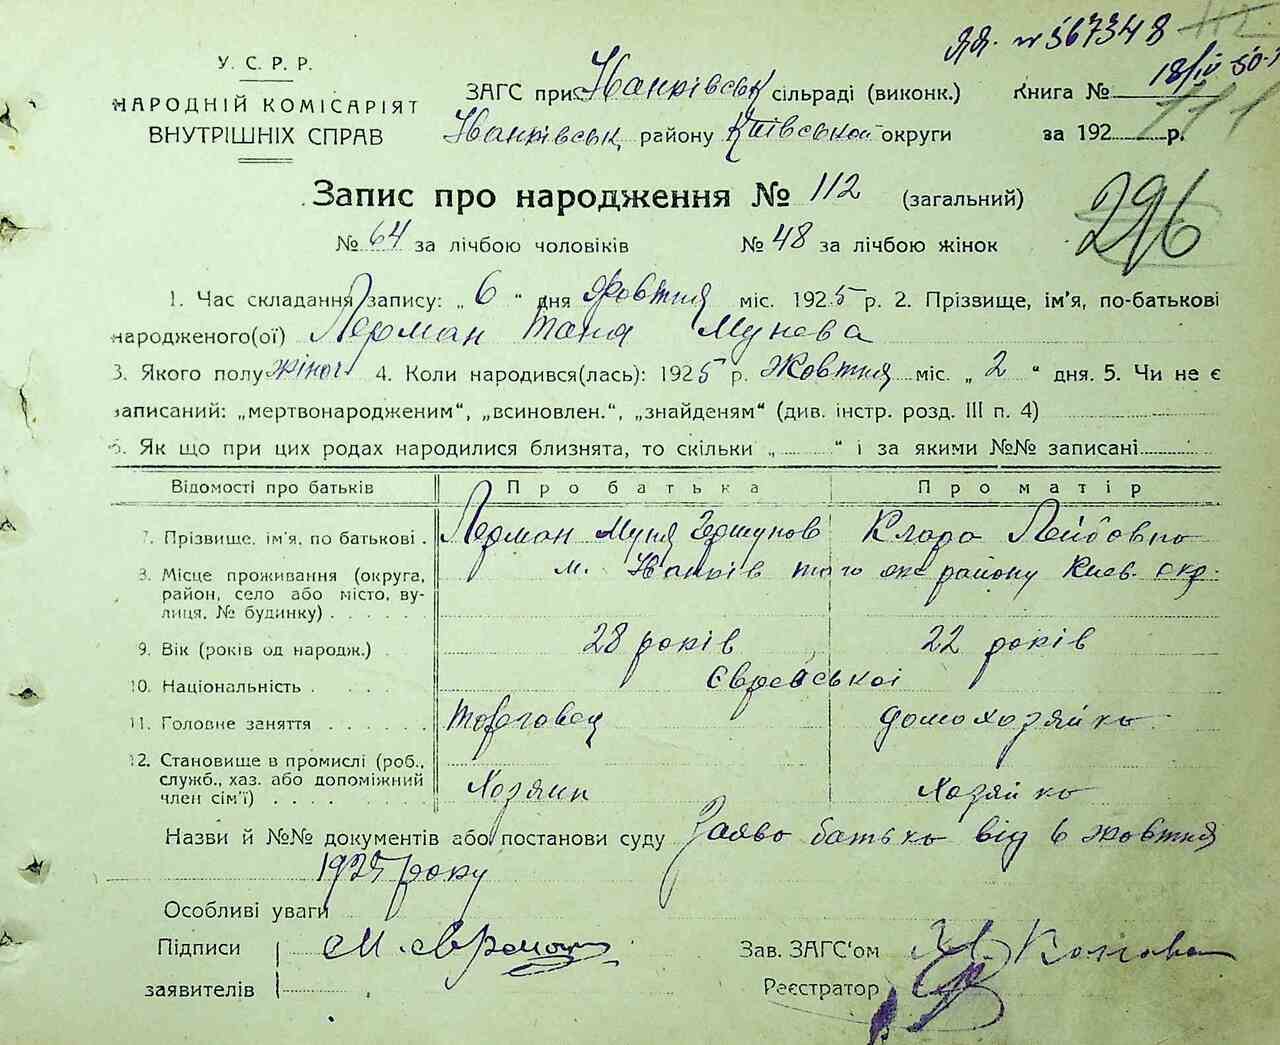 яя. № 567348
18/IV 50
У. С. Р. Р.
НАРОДНІЙ КОМІСАРІЯТ
ВНУТРІШНІХ СПРАВ
ЗАГС при Іванківськ сільраді (виконк.) Книга №
Іванківськ району Київської округи за 192 р.
111
Запис про народження № 112 (загальний)
296
№ 64 за лічбою чоловіків № 48 за лічбою жінок
1. Час складання запису: „ 6 “ дня Жовтня міс. 1925 р. 2. Прізвище, ім'я, по-батькові
народженого(ої) Лерман Таня Мунева
3. Якого полу жіноч 4. Коли народився(лась): 1925 р. Жовтня міс. „ 2 “ дня. 5. Чи не є
записаний: „мертвонародженим“, „всиновлен.“, „знайденям“ (див. інстр. розд. III п. 4)
6. Як що при цих родах народилися близнята, то скільки „ “ і за якими №№ записані
Відомості про батьків Про батька Про матір
7. Прізвище, ім'я, по батькові . Лерман Муня Гершунов Клара Лейбовна
8. Місце проживання (округа, район, село або місто, вулиця, № будинку) м. Іванків того же району Киев. окр.
9. Вік (років од народж.) 28 років 22 років
10. Національність Єврейської
11. Головне заняття торговец домохозяйка
12. Становище в промислі (роб., служб., хаз. або допоміжний член сім'ї) Хозяин Хозяйка
Назви й №№ документів або постанови суду Заява батька від 6 жовтня
1925 року
Особливі уваги
Підписи Зав. ЗАГС'ом
заявителів Реєстратор